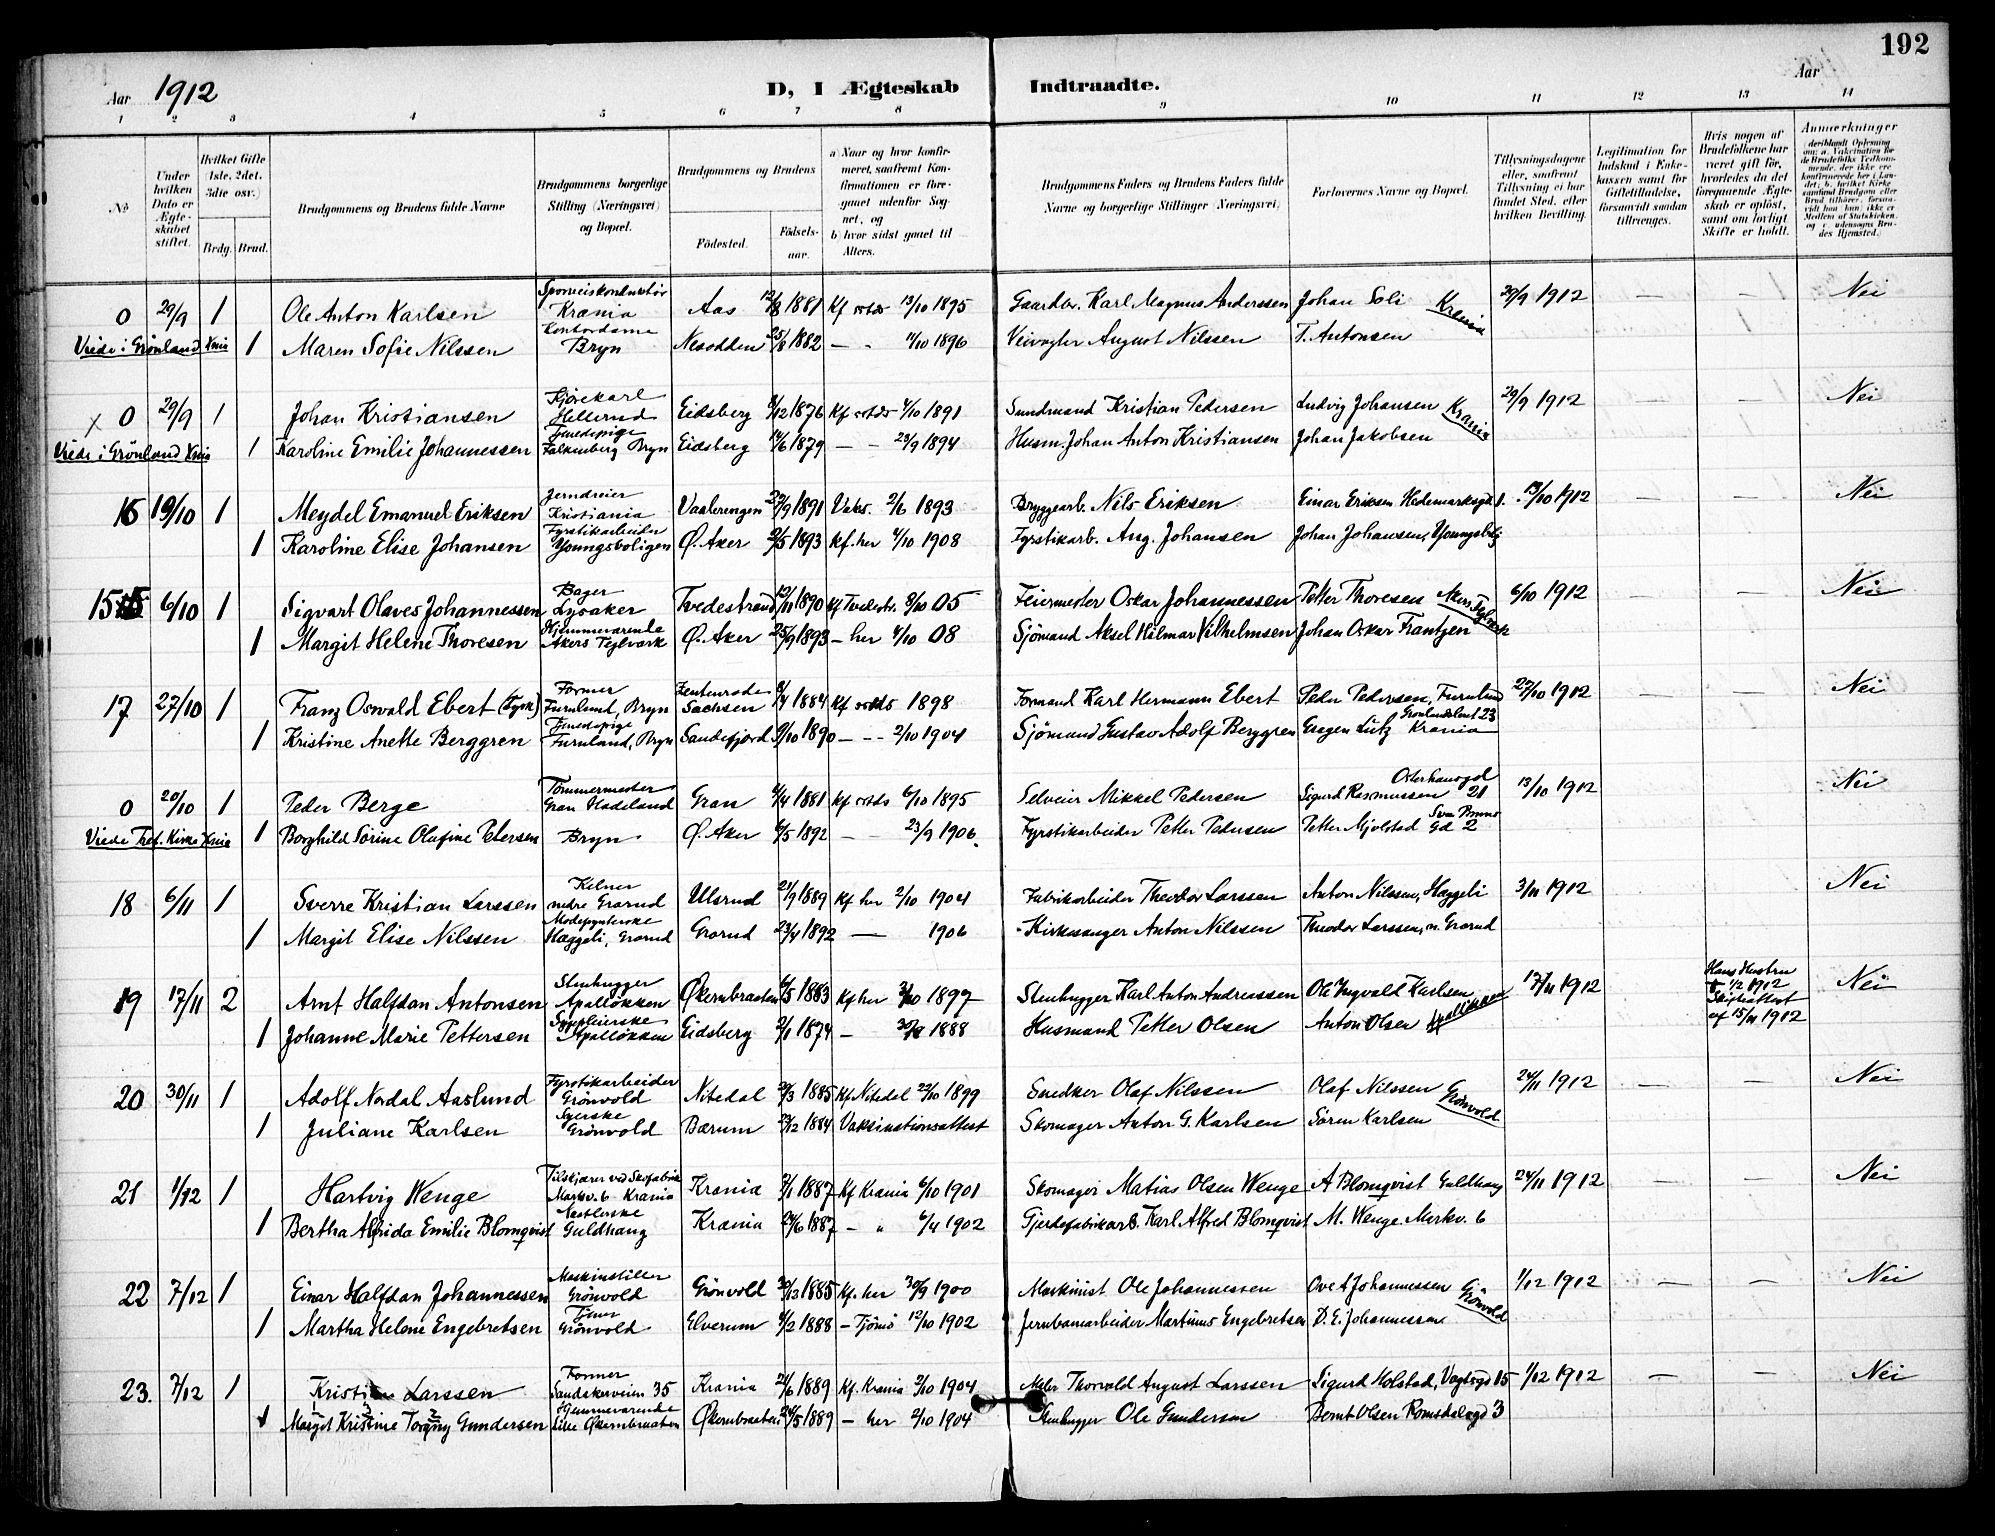 192
Aar 1912 D, I Ægteskab Indtraadte. Aar
1 2 3 4 5 6 7 8 9 10 11 12 13 14
No.
Under hvilken Dato er Ægteskabet stiftet.
Hvilket Gifte (1ste, 2det, 3die osv.)
Brdg. Brud.
Brudgommens og Brudens fulde Navne
Brudgommens borgerlige Stilling (Næringsvei) og Bopæl.
Brudgommens og Brudens
Födested. Födselsaar.
a) Naar og hvor konfirmeret, saafremt Konfirmationen er foregaaet udenfor Sognet, og
b) hvor sidst gaaet til Alters.
Brudgommens Faders og Brudens Faders fulde Navne og borgerlige Stillinger (Næringsvei)
Forlovernes Navne og Bopæl.
Tillysningsdagene eller, saafremt Tillysning ei har fundet Sted, efter hvilken Bevilling.
Legitimation for Indskud i Enkekassen samt for Giftetilladelse, forsaavidt saadan tiltrænges.
Hvis nogen af Brudefolkene har været gift för, hvorledes da det foregaaende Ægteskab er oplöst, samt om lovligt Skifte er holdt.
Anmerkninger
0 29/9 1 Ole Anton Karlsen Sporveiskonduktör Krania Aas 12/8 1881 Kf. 13/10 1895 Gaardbr. Karl Magnus Anderssen Johan Soli Krania 29/9 1912 — — Nei
Viede i Grönland Knia 1 Maren Sofie Nilssen Kontordame Bryn Nesodden 25/8 1882 — " 11/10 1896 Veivogter August Nilssen T. Antonsen
x 0 29/9 1 Johan Kristiansen Kjörekarl Hellerud Eidsberg 8/12 1876 Kf. 4/10 1891 Sundmand Kristian Pedersen Ludvig Johansen Krania 29/9 1912 — — Nei
Viede i Grönland Knia 1 Karoline Emilie Johannessen Tjenestepige Falkenberg Bryn Eidsberg 14/6 1879 — — 23/9 1894 Husm. Johan Anton Kristiansen Johan Jakobsen
16 19/10 1 Meydel Emanuel Eriksen Jerndreier Kristiania Vaalerengen 27/9 1891 Vaks. 2/6 1893 Bryggearb. Nils Eriksen Einar Eriksen Hedemarksgd 1. 13/10 1912 — — Nei
1 Karoline Elise Johansen Fyrstikarbeider Youngsboligen Ø. Aker 2/5 1893 Kf. her 4/10 1908 Fyrstikarb. Aug. Johansen Johan Johansen, Youngsblg
15 6/10 1 Sigvart Olaves Johannessen Bager Lysaker Tvedestrand 13/11 1890 Kf Tvedestr. 8/10 05 Feiermester Oskar Johannessen Petter Thoresen Akers Teglværk 6/10 1912 Nei
1 Margit Helene Thoresen Hjemmeværende Akers Teglværk Ø. Aker 25/9 1893 — her 4/10 08 Sjömand Aksel Hilmar Vilhelmsen Johan Oskar Frantzen
17 27/10 1 Franz Oswald Ebert (Tysk) Former Furulund, Bryn Zeulenroda Sachsen 9/4 1884 Kf 1898 Formand Karl Hermann Ebert Peder Pedersen, Furulund 27/10 1912 Nei
1 Kristine Anette Berggren Tjenestepige Furulund, Bryn Sandefjord 9/10 1890 — — 2/10 1904 Sjömand Gustav Adolf Berggren Eugen Lutz Grönlandsleret 23 Krania
0 20/10 1 Peder Berge Tömmermester Gran Hadeland Gran 4/4 1881 Kf 6/10 1895 Selveier Mikkel Pedersen Sigurd Rasmussen Osterhausgd 21 13/10 1912 Nei
Viede Tref. Kirke Knia 1 Borghild Sörine Olufine Petersen Bryn Ø. Aker 6/5 1892 — 23/9 1906. Fyrstikarbeider Petter Pedersen Petter Mjölstad Sven Bruns Gd 2
18 6/11 1 Sverre Kristian Larssen Kelner nedre Grorud Ulsrud 21/9 1889 Kf her 2/10 1904 Fabrikarbeider Theodor Larssen Anton Nilssen, Haggeli 3/11 1912 Nei
1 Margit Elise Nilssen Modepynterske Haggeli, Grorud Grorud 23/4 1892 — 1906 Kirkesanger Anton Nilssen Theodor Larssen, n. Grorud
19 17/11 2 Arnt Halfdan Antonsen Stenhugger Apallökken Økernbraaten 6/5 1883 Kf her 3/10 1897 Stenhugger Karl Anton Andreassen Ole Ingvald Karlsen 17/11 1912 Hans Hustru † 1/2 1912 Skifteattest af 15/11 1912 Nei
1 Johanne Marie Pettersen Sypleierske Apallökken Eidsberg 2/1 1874 — 30/9 1888 Husmand Petter Olsen Anton Olsen Apallökken
20 30/11 1 Adolf Nordal Aaslund Fyrstikarbeider Grönvold Nitedal 21/3 1885 Kf. Nitedal 22/10 1899 Snedker Olaf Nilssen Olaf Nilssen Grönvold 24/11 1912 — — Nei
1 Juliane Karlsen Syerske Grönvold Bærum 27/12 1884 Vaksinationsattest Skomager Anton G. Karlsen Sören Karlsen
21 1/12 1 Hartvig Wenge Tilskjærer ved Skofabrik Markv. 6 Krania Krania 2/1 1887 Kf Krania 6/10 1901 Skomager Matias Olsen Wenge A Blomqvist Guldhaug 24/11 1912 Nei
1 Bertha Alfrida Emilie Blomqvist Nestlerske Guldhaug Krania 24/6 1887 — " 6/4 1902 Gjerdefabrikarb. Karl Alfred Blomqvist M. Wenge Markv. 6
22 7/12 1 Einar Halfdan Johannessen Maskinstiller Grönvold Grönvold 30/12 1885 Kf. her 30/9 1900 Maskinist Ole Johannessen Ove A Johannessen Grönvold 1/12 1912 — — Nei
1 Martha Helene Engebretsen Tjener Grönvold Elverum 4/2 1888 — Tjömö 12/10 1902 Jernbanearbeider Martinus Engebretsen D. E. Johannessen
23. 7/12 1 Kristian Larssen Former Sandakerveien 35 Krania 21/6 1889 Kf. Krania 2/10 1904 Maler Thorvald August Larssen Sigurd Molstad, Vogtsgd 15 1/12 1912 — — Nei
1 Margit Kristine Torgny Gundersen Hjemmeværende Lille Økernbraaten Økernbraaten 24/5 1889 — her 2/10 1904 Stenhugger Ole Gundersen Bernt Olsen Romsdalsgd 3